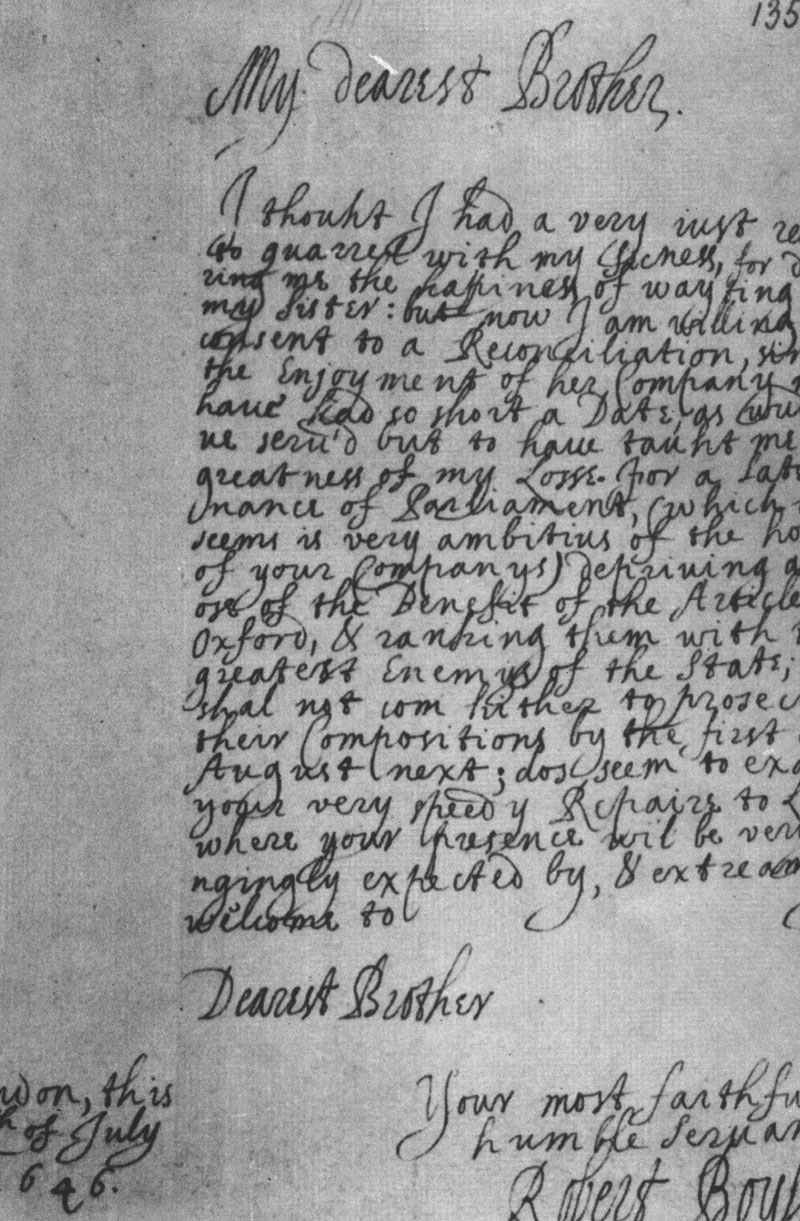 135
My dearest Brother.
I thouht I had a very iust re
to quarrel with my Sicness, for d
ring me the hapines of wayting
my Sister: but now I am willing
consent to a Reconciliation, sin
the Enjoyment of her Company
have had so short a Date, as wu
ve seru'd but to have tauht me
greatness of my Losse. For a Lat
nance of Parliament, (which
seems is very ambitius of the ho
of your Companys) depriving
ose of the Benefit of the Article
Oxford, & ranking them with t
greatest Enemys of the State;
shal not com hither to prosec
their Compositions by the first
August next; dos seem to exa
your very speedy Repaire to L
where your presence wil be ver
ngingly expected by, & extream
welcome to
Dearest Brother
ndon, this
h of July
646.
Your most faithfu
humble Seruan
Robert Boyl